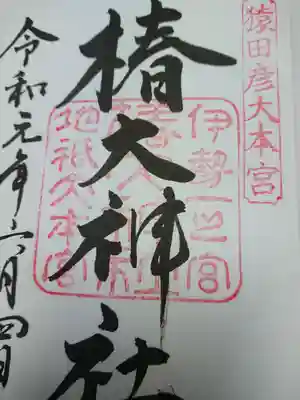 猿田彦大本宮
椿大神社
伊勢一之宮
地祇大本宮
令和元年六月四日